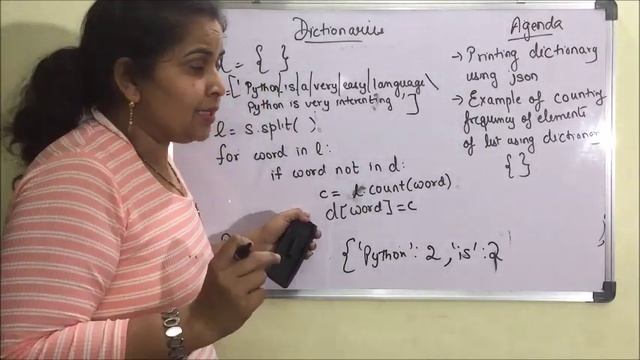 Dictionaries
= { }
=['Python|is|a|very|easy|language\
Python is very interesting']
l = s.split( )
for word in l:
if word not in d:
c= l.count(word)
d[word]=c
{'Python': 2,'is':2
Agenda
→ Printing dictionary
using json
→ Example of counting
frequency of elements
of list using dictionary
{ }